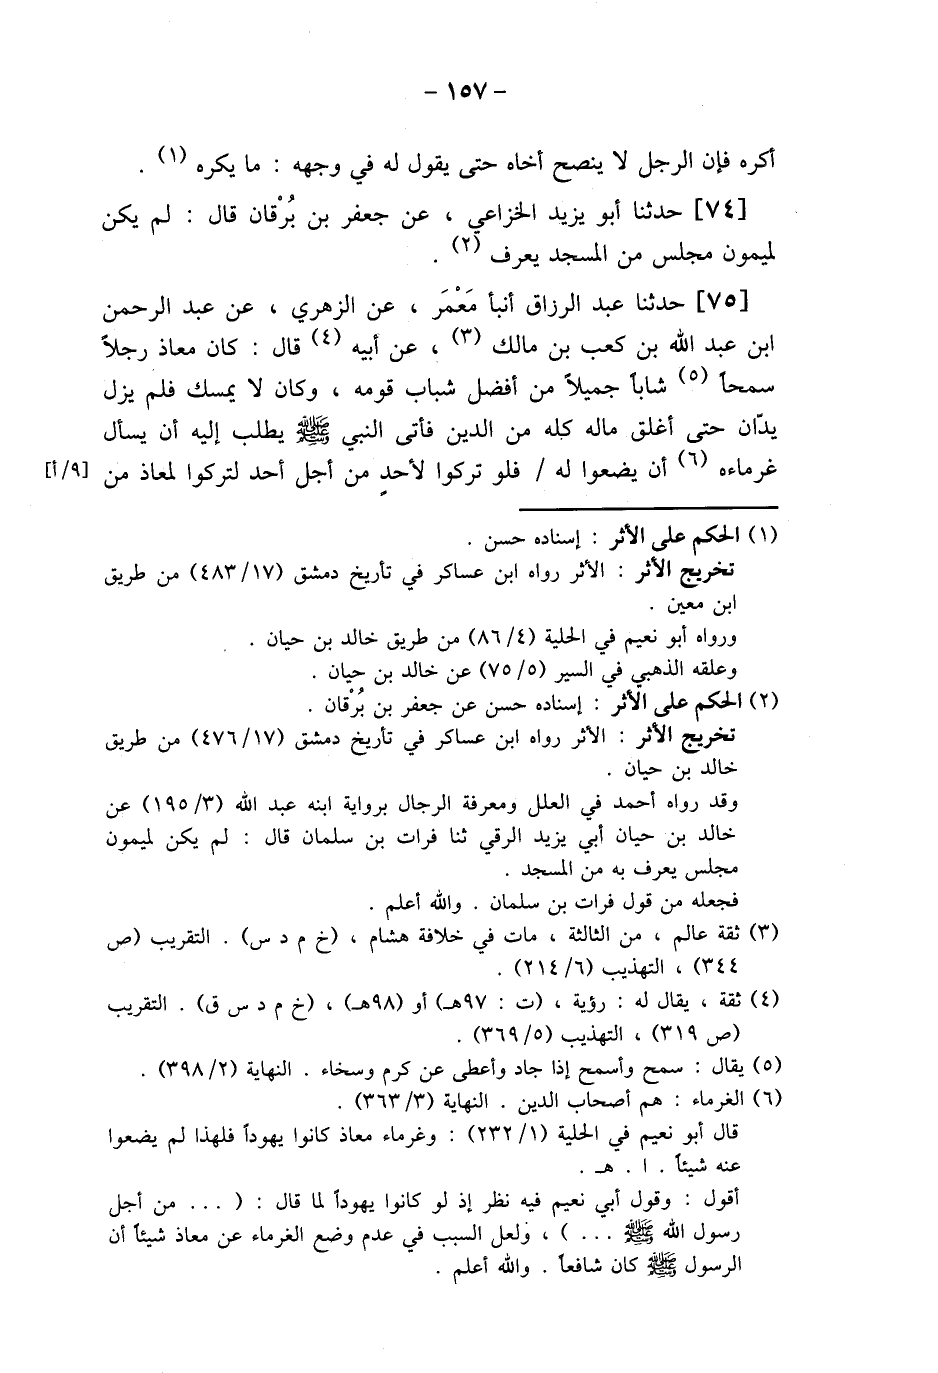 - ١٥٧ -
أكره فإن الرجل لا ينصح أخاه حتى يقول له في وجهه : ما يكره (١) .
[٧٤] حدثنا أبو يزيد الخزاعي ، عن جعفر بن بُرْقان قال : لم يكن
لميمون مجلس من المسجد يعرف (٢) .
[٧٥] حدثنا عبد الرزاق أنبأ مَعْمَر ، عن الزهري ، عن عبد الرحمن
ابن عبد الله بن كعب بن مالك (٣) ، عن أبيه (٤) قال : كان معاذ رجلاً
سمحاً (٥) شاباً جميلاً من أفضل شباب قومه ، وكان لا يمسك فلم يزل
يدّان حتى أغلق ماله كله من الدين فأتى النبي ﷺ يطلب إليه أن يسأل
غرماءه (٦) أن يضعوا له / فلو تركوا لأحدٍ من أجل أحد لتركوا لمعاذ من [٩/أ]
(١) الحكم على الأثر : إسناده حسن .
تخريج الأثر : الأثر رواه ابن عساكر في تأريخ دمشق (٤٨٣/١٧) من طريق
ابن معين .
ورواه أبو نعيم في الحلية (٨٦/٤) من طريق خالد بن حيان .
وعلقه الذهبي في السير (٧٥/٥) عن خالد بن حيان .
(٢) الحكم على الأثر : إسناده حسن عن جعفر بن بُرْقان .
تخريج الأثر : الأثر رواه ابن عساكر في تأريخ دمشق (٤٧٦/١٧) من طريق
خالد بن حيان .
وقد رواه أحمد في العلل ومعرفة الرجال برواية ابنه عبد الله (١٩٥/٣) عن
خالد بن حيان أبي يزيد الرقي ثنا فرات بن سلمان قال : لم يكن لميمون
مجلس يعرف به من المسجد .
فجعله من قول فرات بن سلمان . والله أعلم .
(٣) ثقة عالم ، من الثالثة ، مات في خلافة هشام ، (خ م د س) . التقريب (ص
٣٤٤) ، التهذيب (٢١٤/٦) .
(٤) ثقة ، يقال له : رؤية ، (ت : ٩٧هـ) أو (٩٨هـ) ، (خ م د س ق) . التقريب
(ص ٣١٩) ، التهذيب (٣٦٩/٥) .
(٥) يقال : سمح وأسمح إذا جاد وأعطى عن كرم وسخاء . النهاية (٣٩٨/٢) .
(٦) الغرماء : هم أصحاب الدين . النهاية (٣٦٣/٣) .
قال أبو نعيم في الحلية (٢٣٢/١) : وغرماء معاذ كانوا يهوداً فلهذا لم يضعوا
عنه شيئاً . ا . هـ .
أقول : وقول أبي نعيم فيه نظر إذ لو كانوا يهوداً لما قال : ( ... من أجل
رسول الله ﷺ ... ) ، ولعل السبب في عدم وضع الغرماء عن معاذ شيئاً أن
الرسول ﷺ كان شافعاً . والله أعلم .